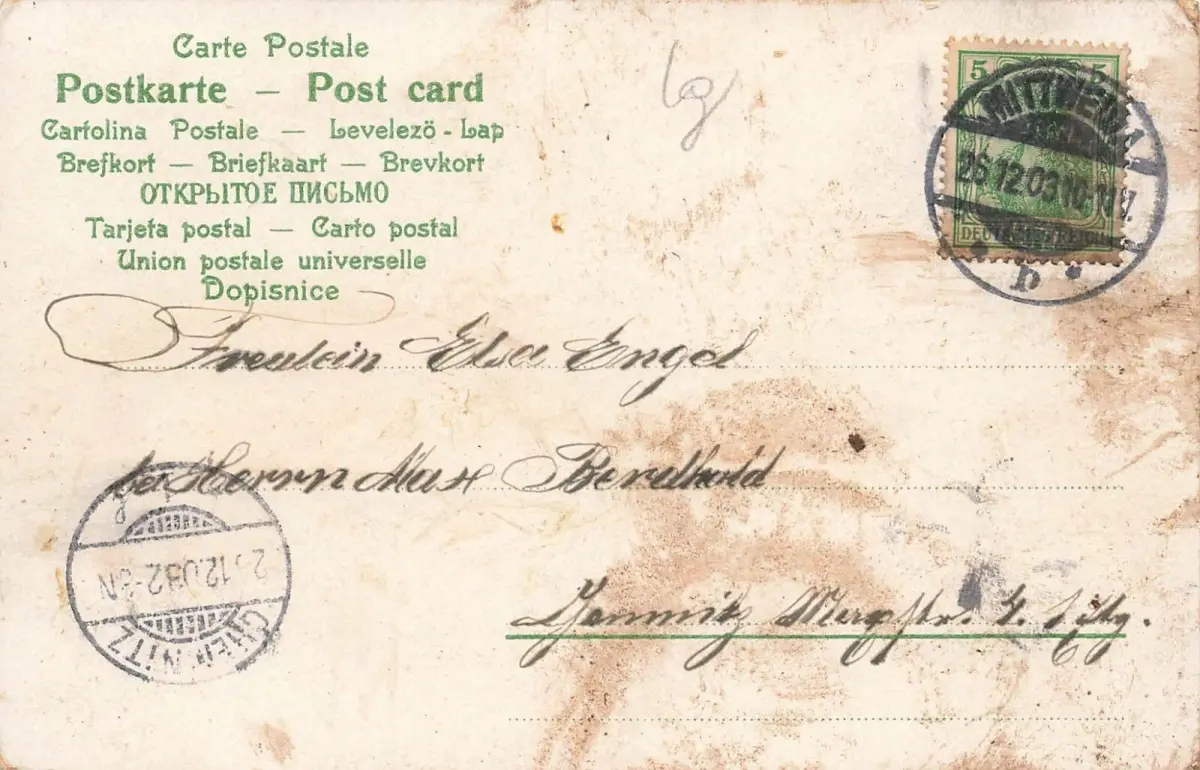 Carte Postale
Postkarte — Post card
Cartolina Postale — Levelező - Lap
Brefkort — Briefkaart — Brevkort
ОТКРЫТОЕ ПИСЬМО
Tarjeta postal — Carto postal
Union postale universelle
Dopisnice
5 5
MITTWEIDA
26 12 03 10-11 V.
DEUTSCHES REICH
b
Freulein Elsa Engel
bei Herrn Max Berdhold
CHEMNITZ
12.03 2-3N